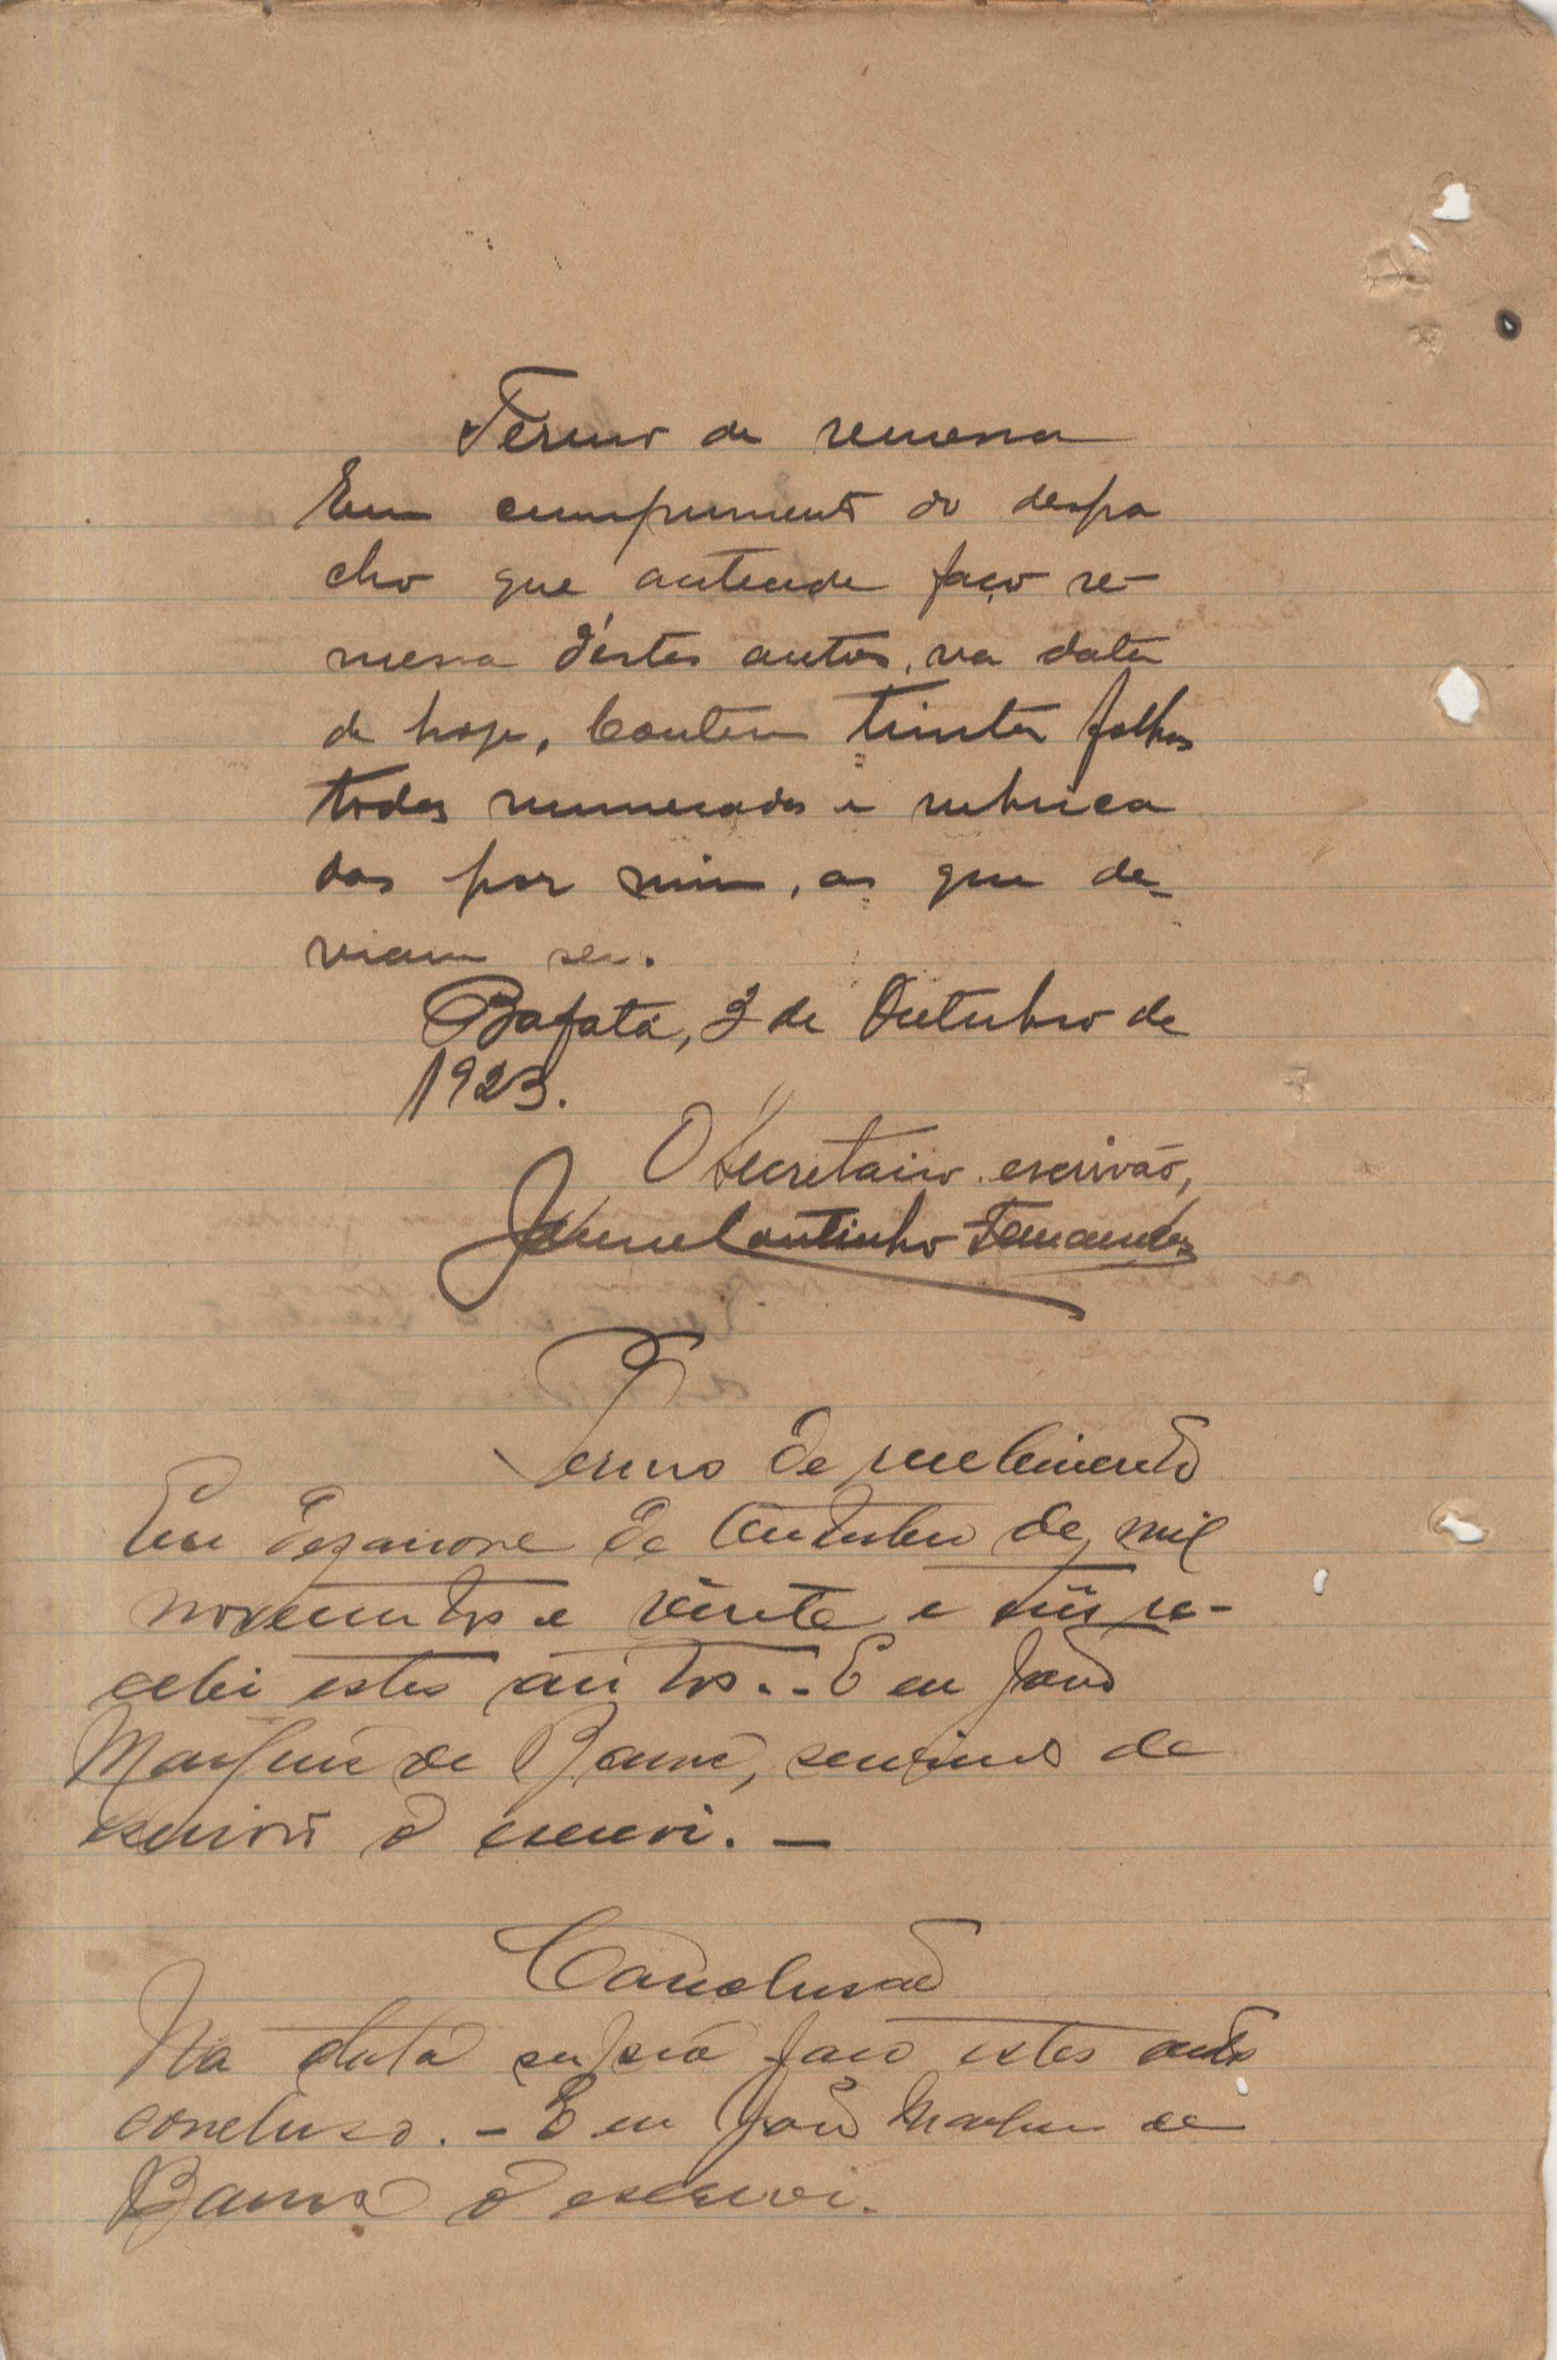 Termo de remessa
Em cumprimento do despa
cho que antecede faço re-
messa d'estes autos, na data
de hoje, Contem trinta folhas
todas numeradas e rubrica
das por mim, as que de-
viam ser.
Bafatá, 3 de Outubro de
1923.
O Secretario escrivão,
Jaime Coutinho Fernandes
Termo de recebimento
Em dezanove de Outubro de mil
novecentos e vinte e três re-
cebi estes autos.- E eu João
de servindo de
escrivão o escrevi. -
Conclusão
Na data supra faco estes autos
concluso. - E eu João de
o escrevi.